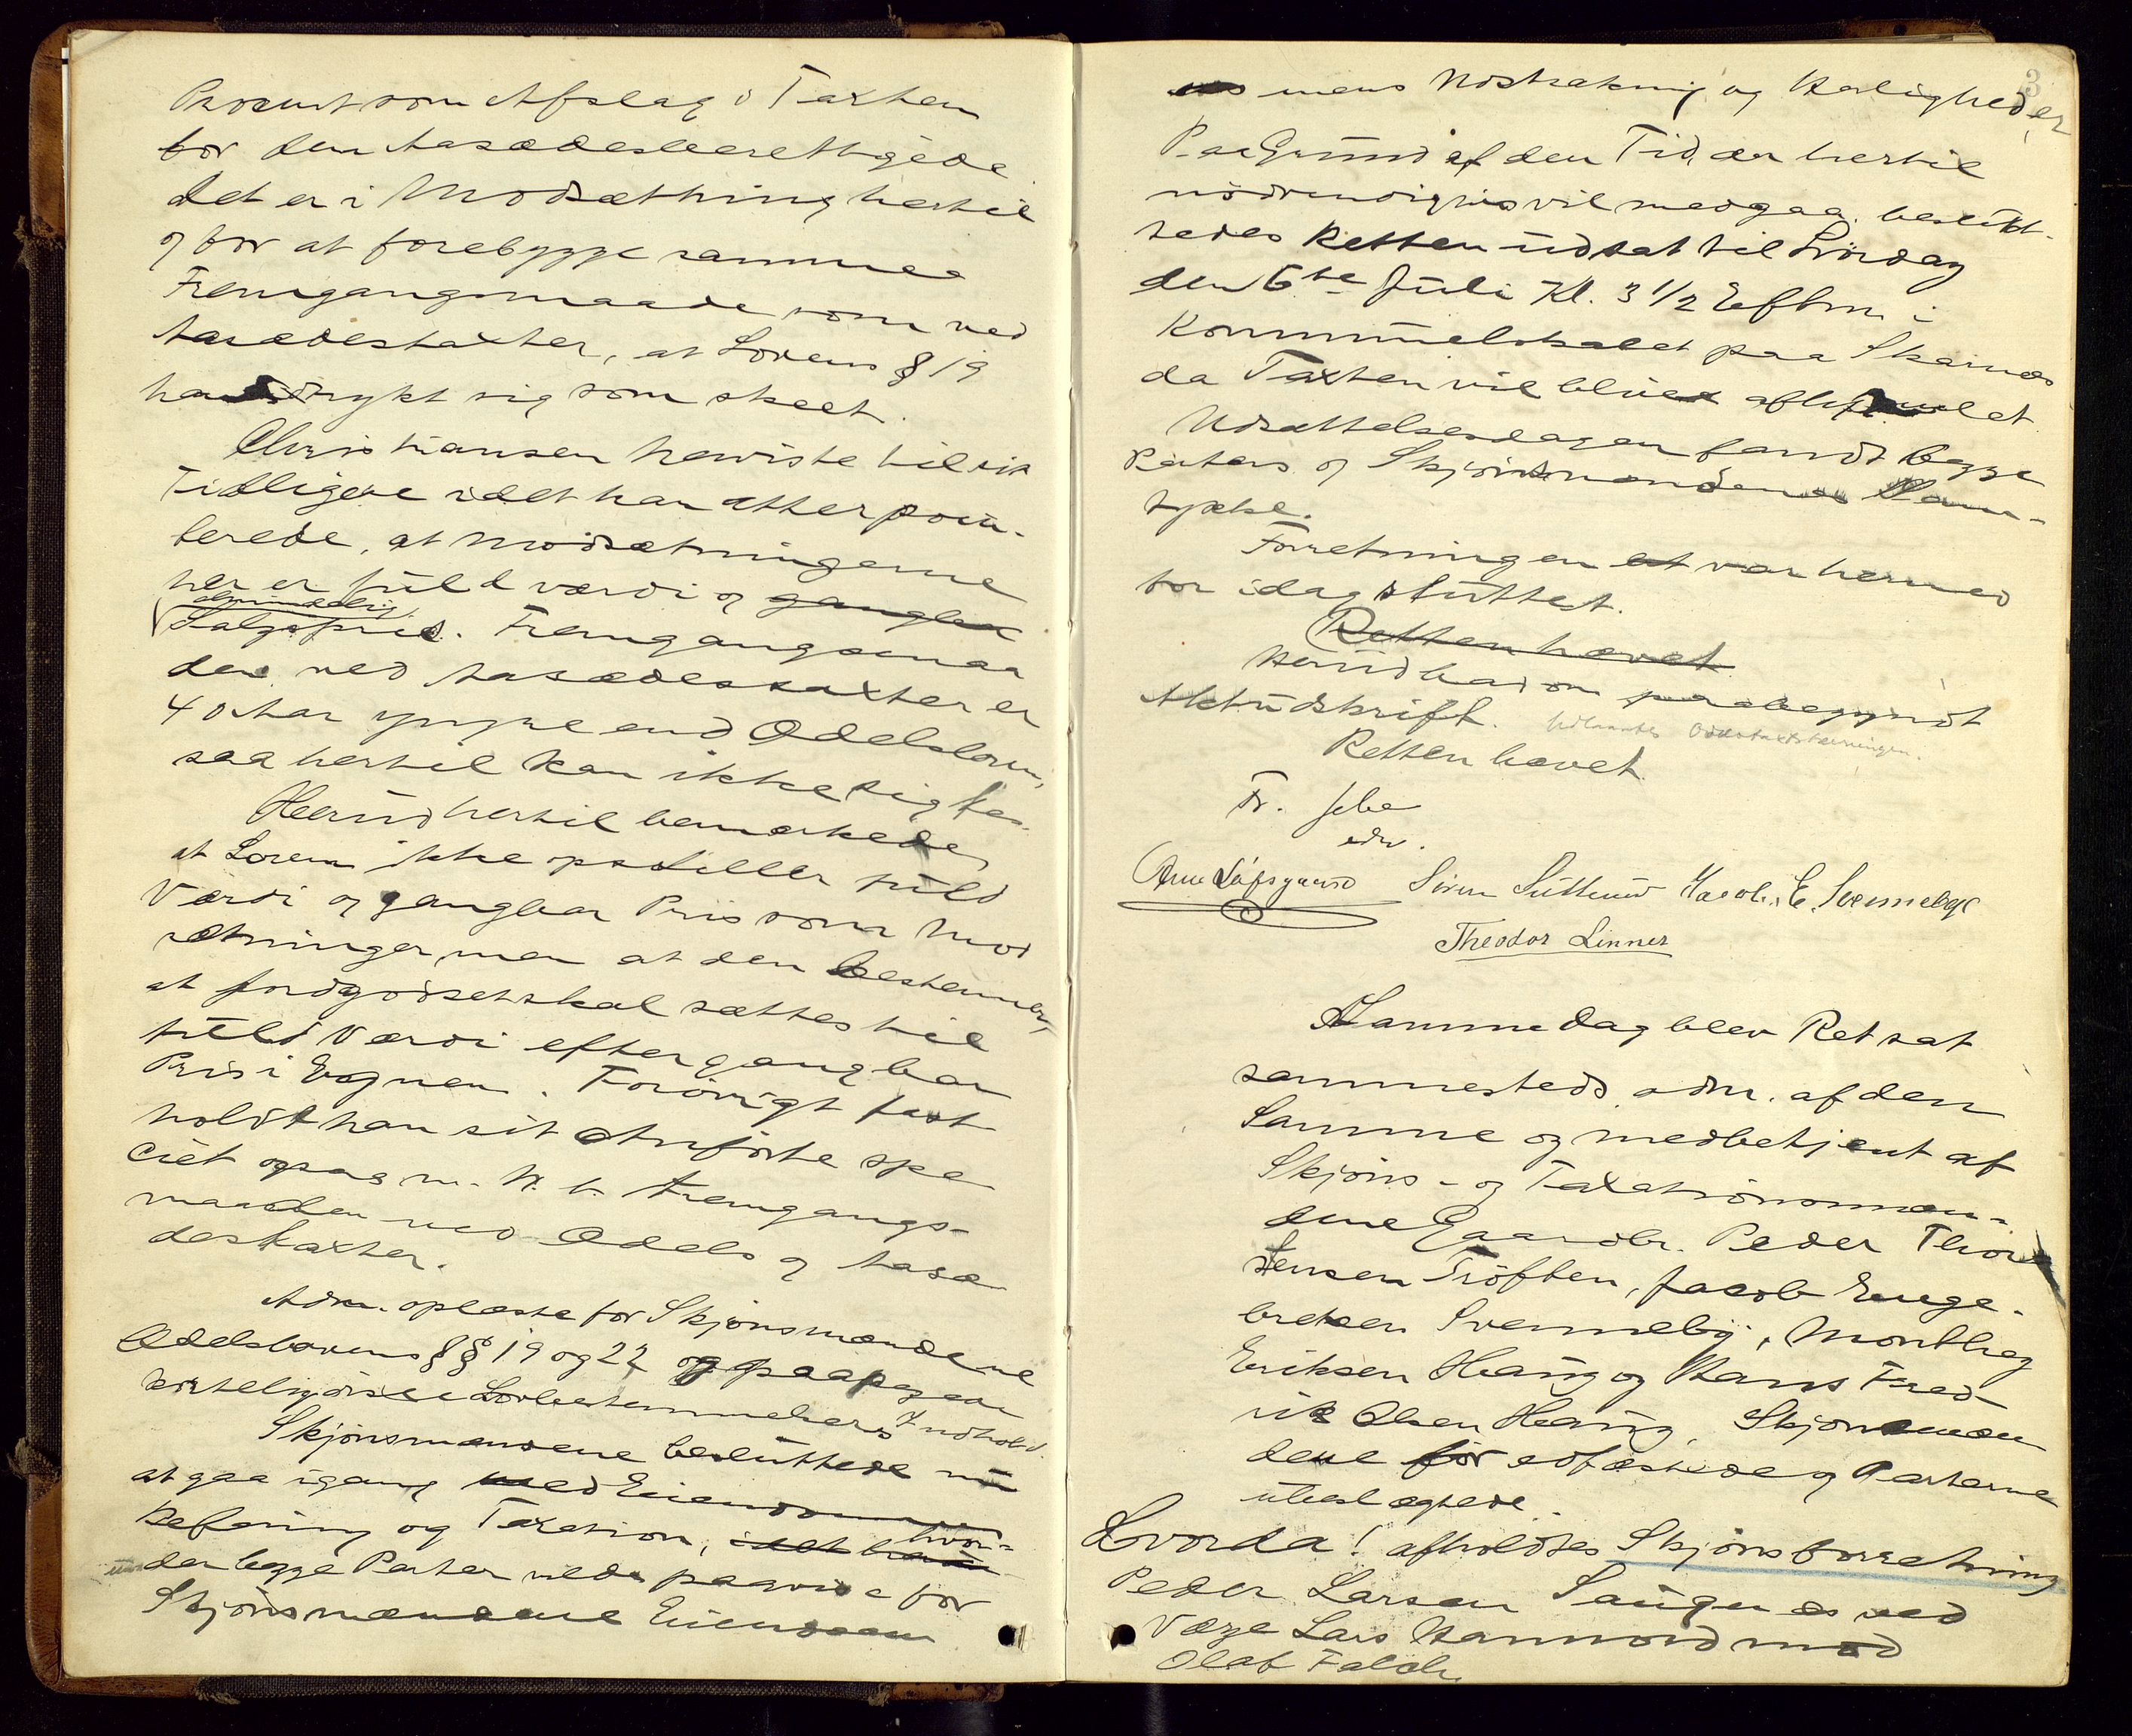 Procent som Afslag i Taxten
for den Aasædesberettigede
det er i Modsætning hertil
og for at forebygge samme
Fremgangsmaade som ved
Aasædestaxter, at Lovens § 19
har udtrykt sig som skeet.
Christiansen henviste til sit
Tidligere idet han atter poin-
terede, at modsætningerne
her er fuld værdi og gangbar
almindelig
Salgspris. Fremgangsmaa
den ved Aasædestaxter er
40 Aar yngre end Odelsloven,
saa hertil kan ikke sigtes.
Heerud hertil bemærkede,
at Loven ikke opstiller fuld
Værdi og gangbar Pris som mod
sætninger, men at den bestemmer,
at Jordgodset skal sættes til
fuld Værdi efter gangbar
Pris i Egnen. Forøvrigt fast
holdt han sit Anførte spe
cielt ogsaa m. H. t. Fremgangs-
maaden ved Odels og Aasæ
destaxter.
Adm. oplæste for Skjønsmændene
Odelslovens §§ 19 og 22 og paapegede
Lovbestemmelsers Indhold.
Skjønsmændene besluttede nu
at gaa igang med Eiendommens
Befaring og Taxation, idet hvor-
under begge Parter vilde paavise for
Skjønsmændene Eiendom
3
mens Udstrækning og Herligheder
Paa Grund af den Tid, der hertil
nødvendigvis vil medgaa, beslut-
tedes Retten udsat til Lørdag
den 6te Juli Kl. 3 1/2 Eftm i
Kommunelokalet paa Skarnes
da Taxten vil blive afhjemlet.
Udsættelsesdagen fandt begge
Parters og Skjønsmændenes Sam-
tykke.
Forretningen var hermed
for idag sluttet.
Retten hævet
Heerud bad om paabegyndt
Aktudskrift.
Retten hævet.
Fr.
edv.
Arne Søren Jacob E. Svenneby
Theodor Linner
Samme Dag blev Ret sat
sammesteds, adm. af den
Samme og medbetjent af
Skjøns- og Taxationsmæn-
dene Gaardbr. Peder Thor
stensen Trøften, Jacob Enge-
bretsen Svenneby, Monthey
Eriksen Haug og Hans Fred-
rik Olsen Haug. Skjønsmæn
dene før edfæstede og Parterne
ubeslægtede.
Hvorda! afholdtes Skjønsforretning
Peder Larsen Saugnes ved
Værge Lars Hammond mod
Olaf Falch